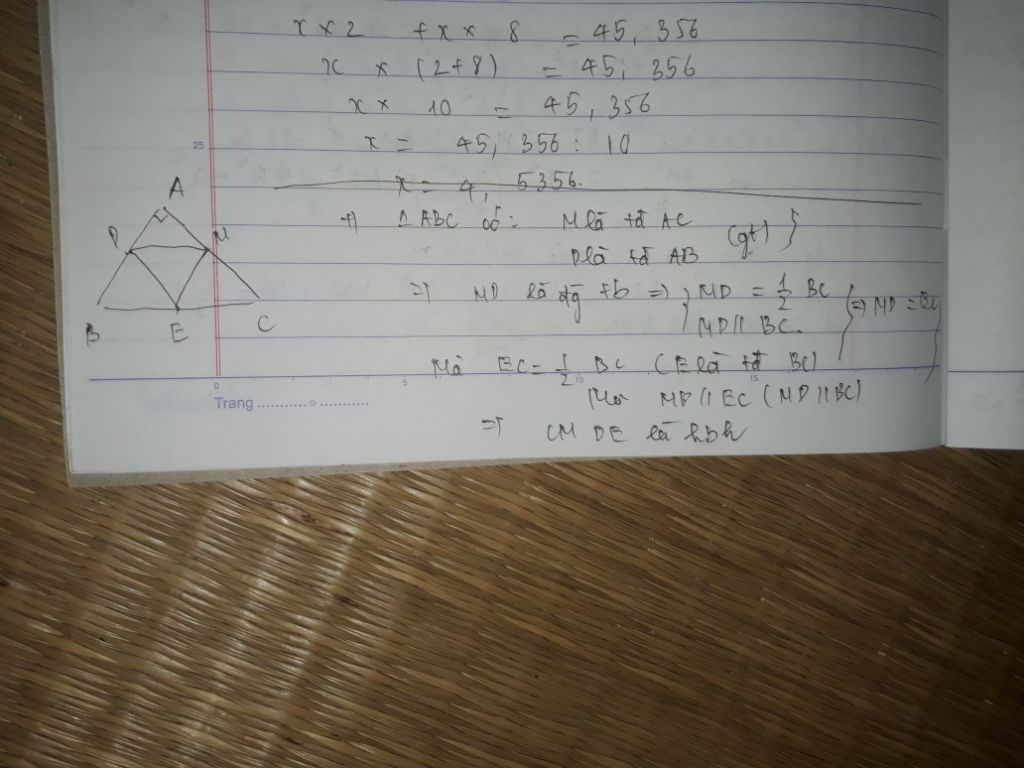 x × 2 + x × 8 = 45, 356
x × (2+8) = 45, 356
x × 10 = 45, 356
25
x = 45, 356 : 10
x = 4, 5356.
A
D
M
B
E
C
Δ ABC có: M là tđ AC
(gt) }
D là tđ AB
=> MD là đg tb => } MD = 1/2 BC
MD // BC.
=> MD = EC
Mà EC = 1/2 BC (E là tđ BC)
0 5 10 15
Mà MD // EC (MD // BC)
Trang
=> CMDE là hbh